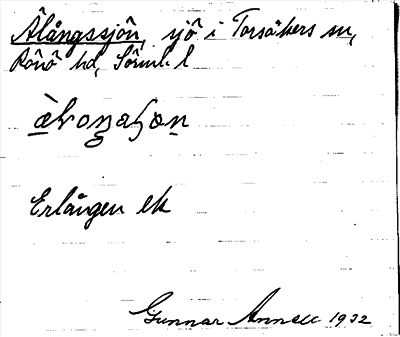 Ålångssjön, sjö i Torsåkers sn,
Rönö hd, Sörml. l
Erlången ek
Gunnar Annell 1932